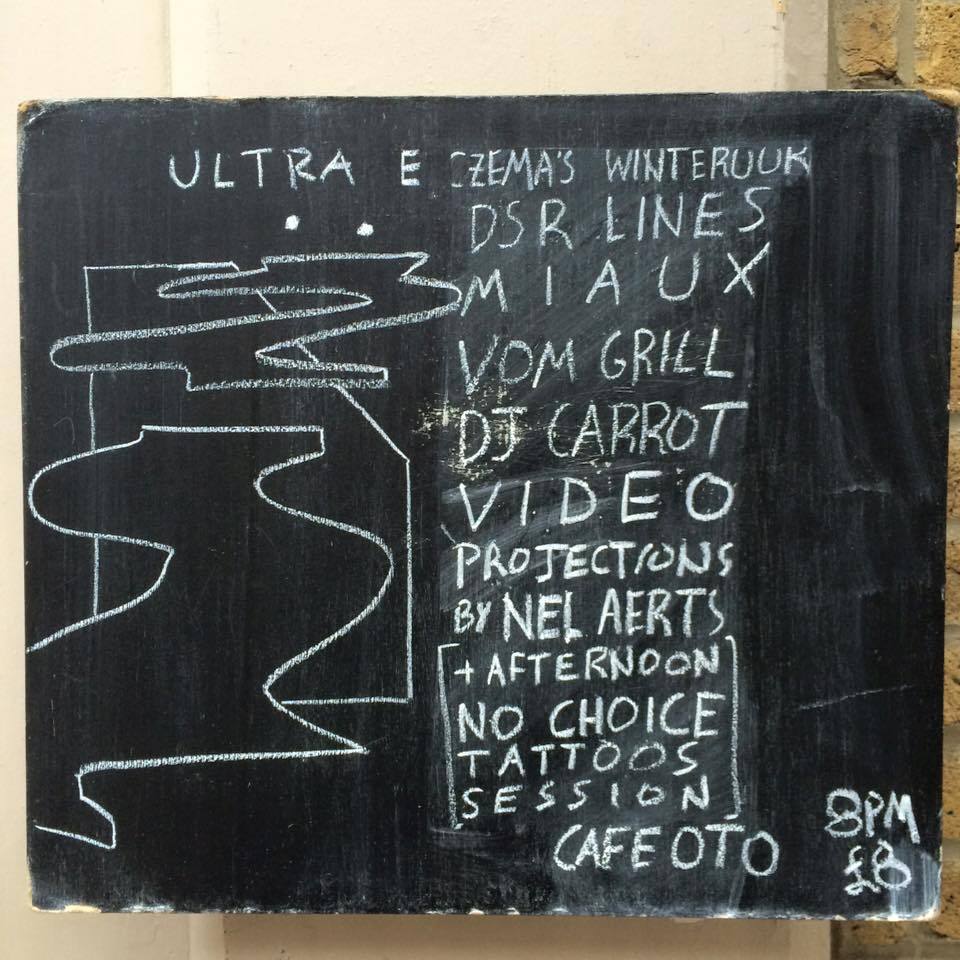 ULTRA ECZEMA'S WINTERUUR
DSR LINES
MIAUX
VOM GRILL
DJ CARROT
VIDEO
PROJECTIONS
BY NEL AERTS
[+ AFTERNOON
NO CHOICE
TATTOOS
SESSION]
CAFE OTO
8PM
£8